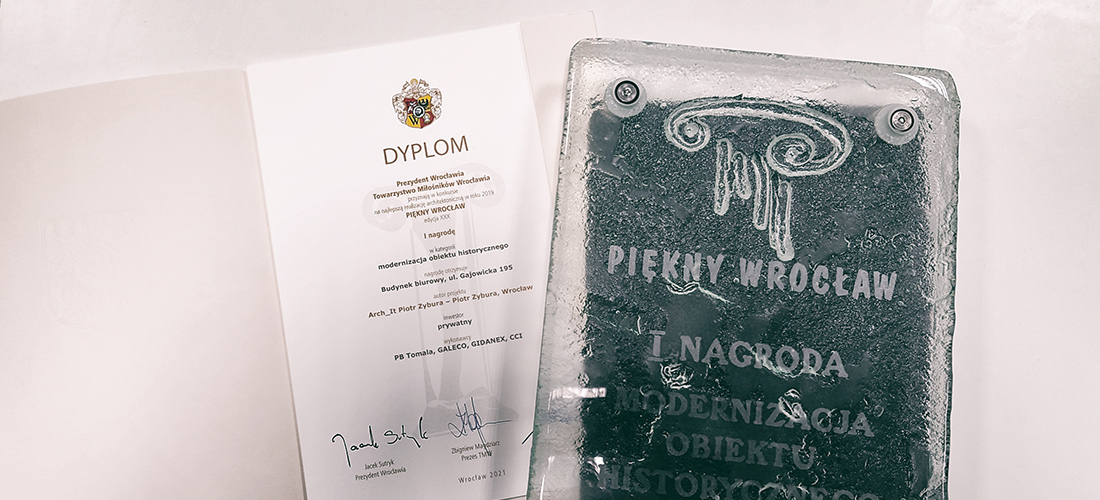 DYPLOM
Prezydent Wrocławia
Towarzystwo Miłośników Wrocławia
przyznają w konkursie
na najlepszą realizację architektoniczną w roku 2019
PIĘKNY WROCŁAW
edycja XXX
I nagrodę
w kategorii
modernizacja obiektu historycznego
nagrodę otrzymuje
Budynek biurowy, ul. Gajowicka 195
autor projektu
Arch_It Piotr Zybura – Piotr Zybura, Wrocław
inwestor
prywatny
wykonawcy
PB Tomala, GALECO, GIDANEX, CCI
Jacek Sutryk
Jacek Sutryk
Prezydent Wrocławia
Zbigniew Magdziarz
Prezes TMW
Wrocław 2021
PIĘKNY WROCŁAW
I NAGRODA
MODERNIZACJA
OBIEKTU
HISTORYCZNEGO